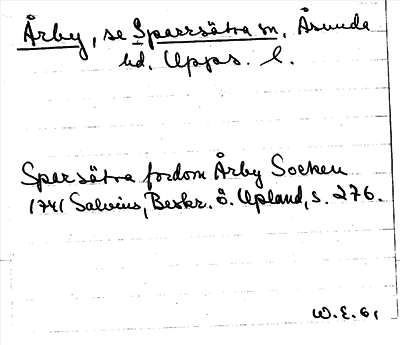 Årby, se Sparrsätra sn, Åsunda
hd. Upps. l.
Sparsätra fordom Årby Socken
1741 Salvius, Beskr. ö. Upland, s. 276.
W.E. 61